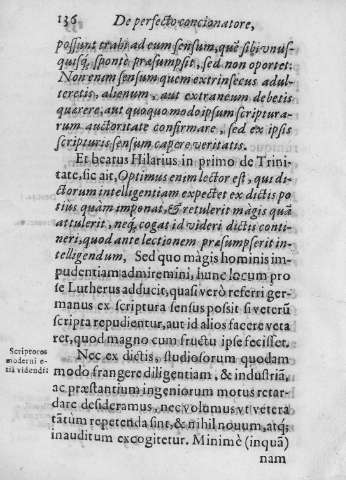 136 De perfecto concionatore,
possunt trahi ad eum sensum, quē sibi vnus-
quisq; spontè præsumpsit, sed non oportet:
Non enim sensum quem extrinsecus adul-
teretis, alienum, aut extraneum debetis
quærere, aut quoquo modo ipsum scriptura-
rum auctoritate confirmare, sed ex ipsis
scripturis sensum capere veritatis.
Et beatus Hilarius in primo de Trini-
tate, sic ait, Optimus enim lector est, qui di-
ctorum intelligentiam expectet ex dictis po
tius quàm imponat, & retulerit màgis quā
attulerit, neq; cogat id videri dictis conti-
neri, quod ante lectionem præsumpserit in-
telligendum, Sed quo magis hominis im-
pudentiam admiremini, hunc locum pro
se Lutherus adducit, quasi verò referri ger-
manus ex scriptura sensus possit si veterū
scripta repudientur, aut id alios facere veta
ret, quod magno cum fructu ipse fecisset.
Scriptores
moderni e-
tiā videndi
Nec ex dictis, studiosorum quodam
modo frangere diligentiam, & industriā,
ac præstantium ingeniorum motus retar-
dare desideramus, nec volumus vt vetera
tātùm repetenda sint, & nihil nouum, atq;
inauditum excogitetur. Minimè (inquā)
nam